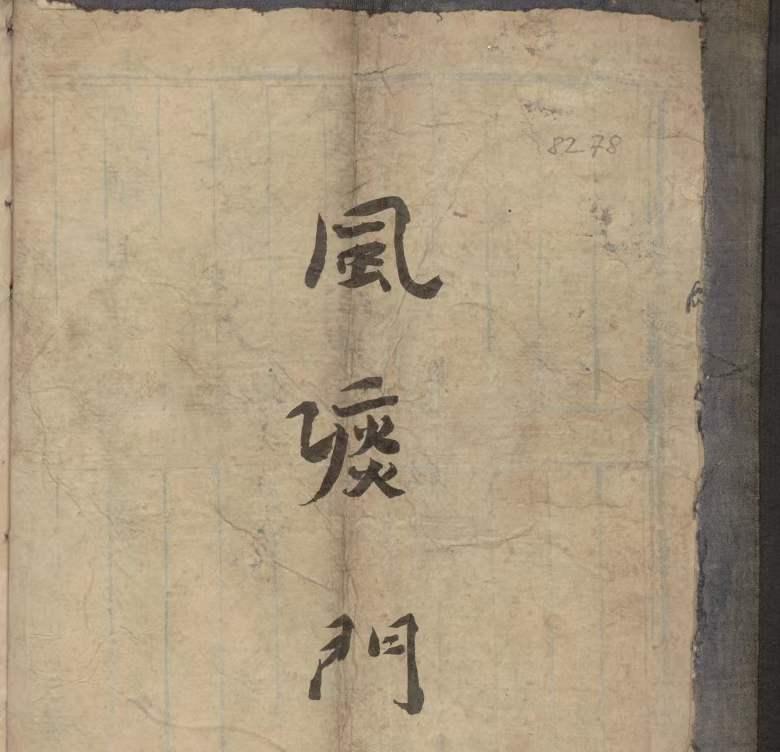 風
痰
門
8278